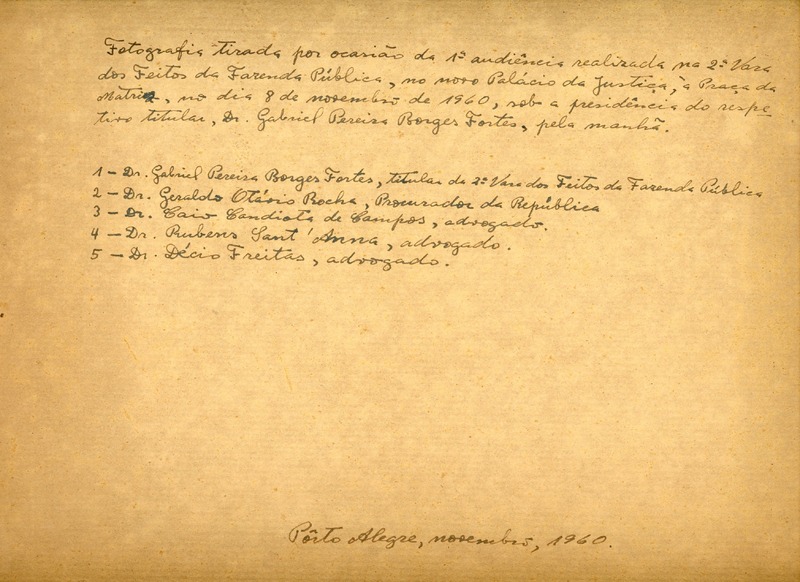 Fotografia tirada por ocasião da 1ª audiência realizada na 2ª Vara
dos Feitos da Fazenda Pública, no novo Palácio da Justiça, à Praça da
Matriz, no dia 8 de novembro de 1960, sob a presidência do respe-
tivo titular, Dr. Gabriel Pereira Borges Fortes, pela manhã.
1 - Dr. Gabriel Pereira Borges Fortes, titular da 2ª Vara dos Feitos da Fazenda Pública
2 - Dr. Geraldo Otávio Rocha, Procurador da República
3 - Dr. Caio Candiota de Campos, advogado.
4 - Dr. Rubens Sant'Anna, advogado.
5 - Dr. Décio Freitas, advogado.
Pôrto Alegre, novembro, 1960.